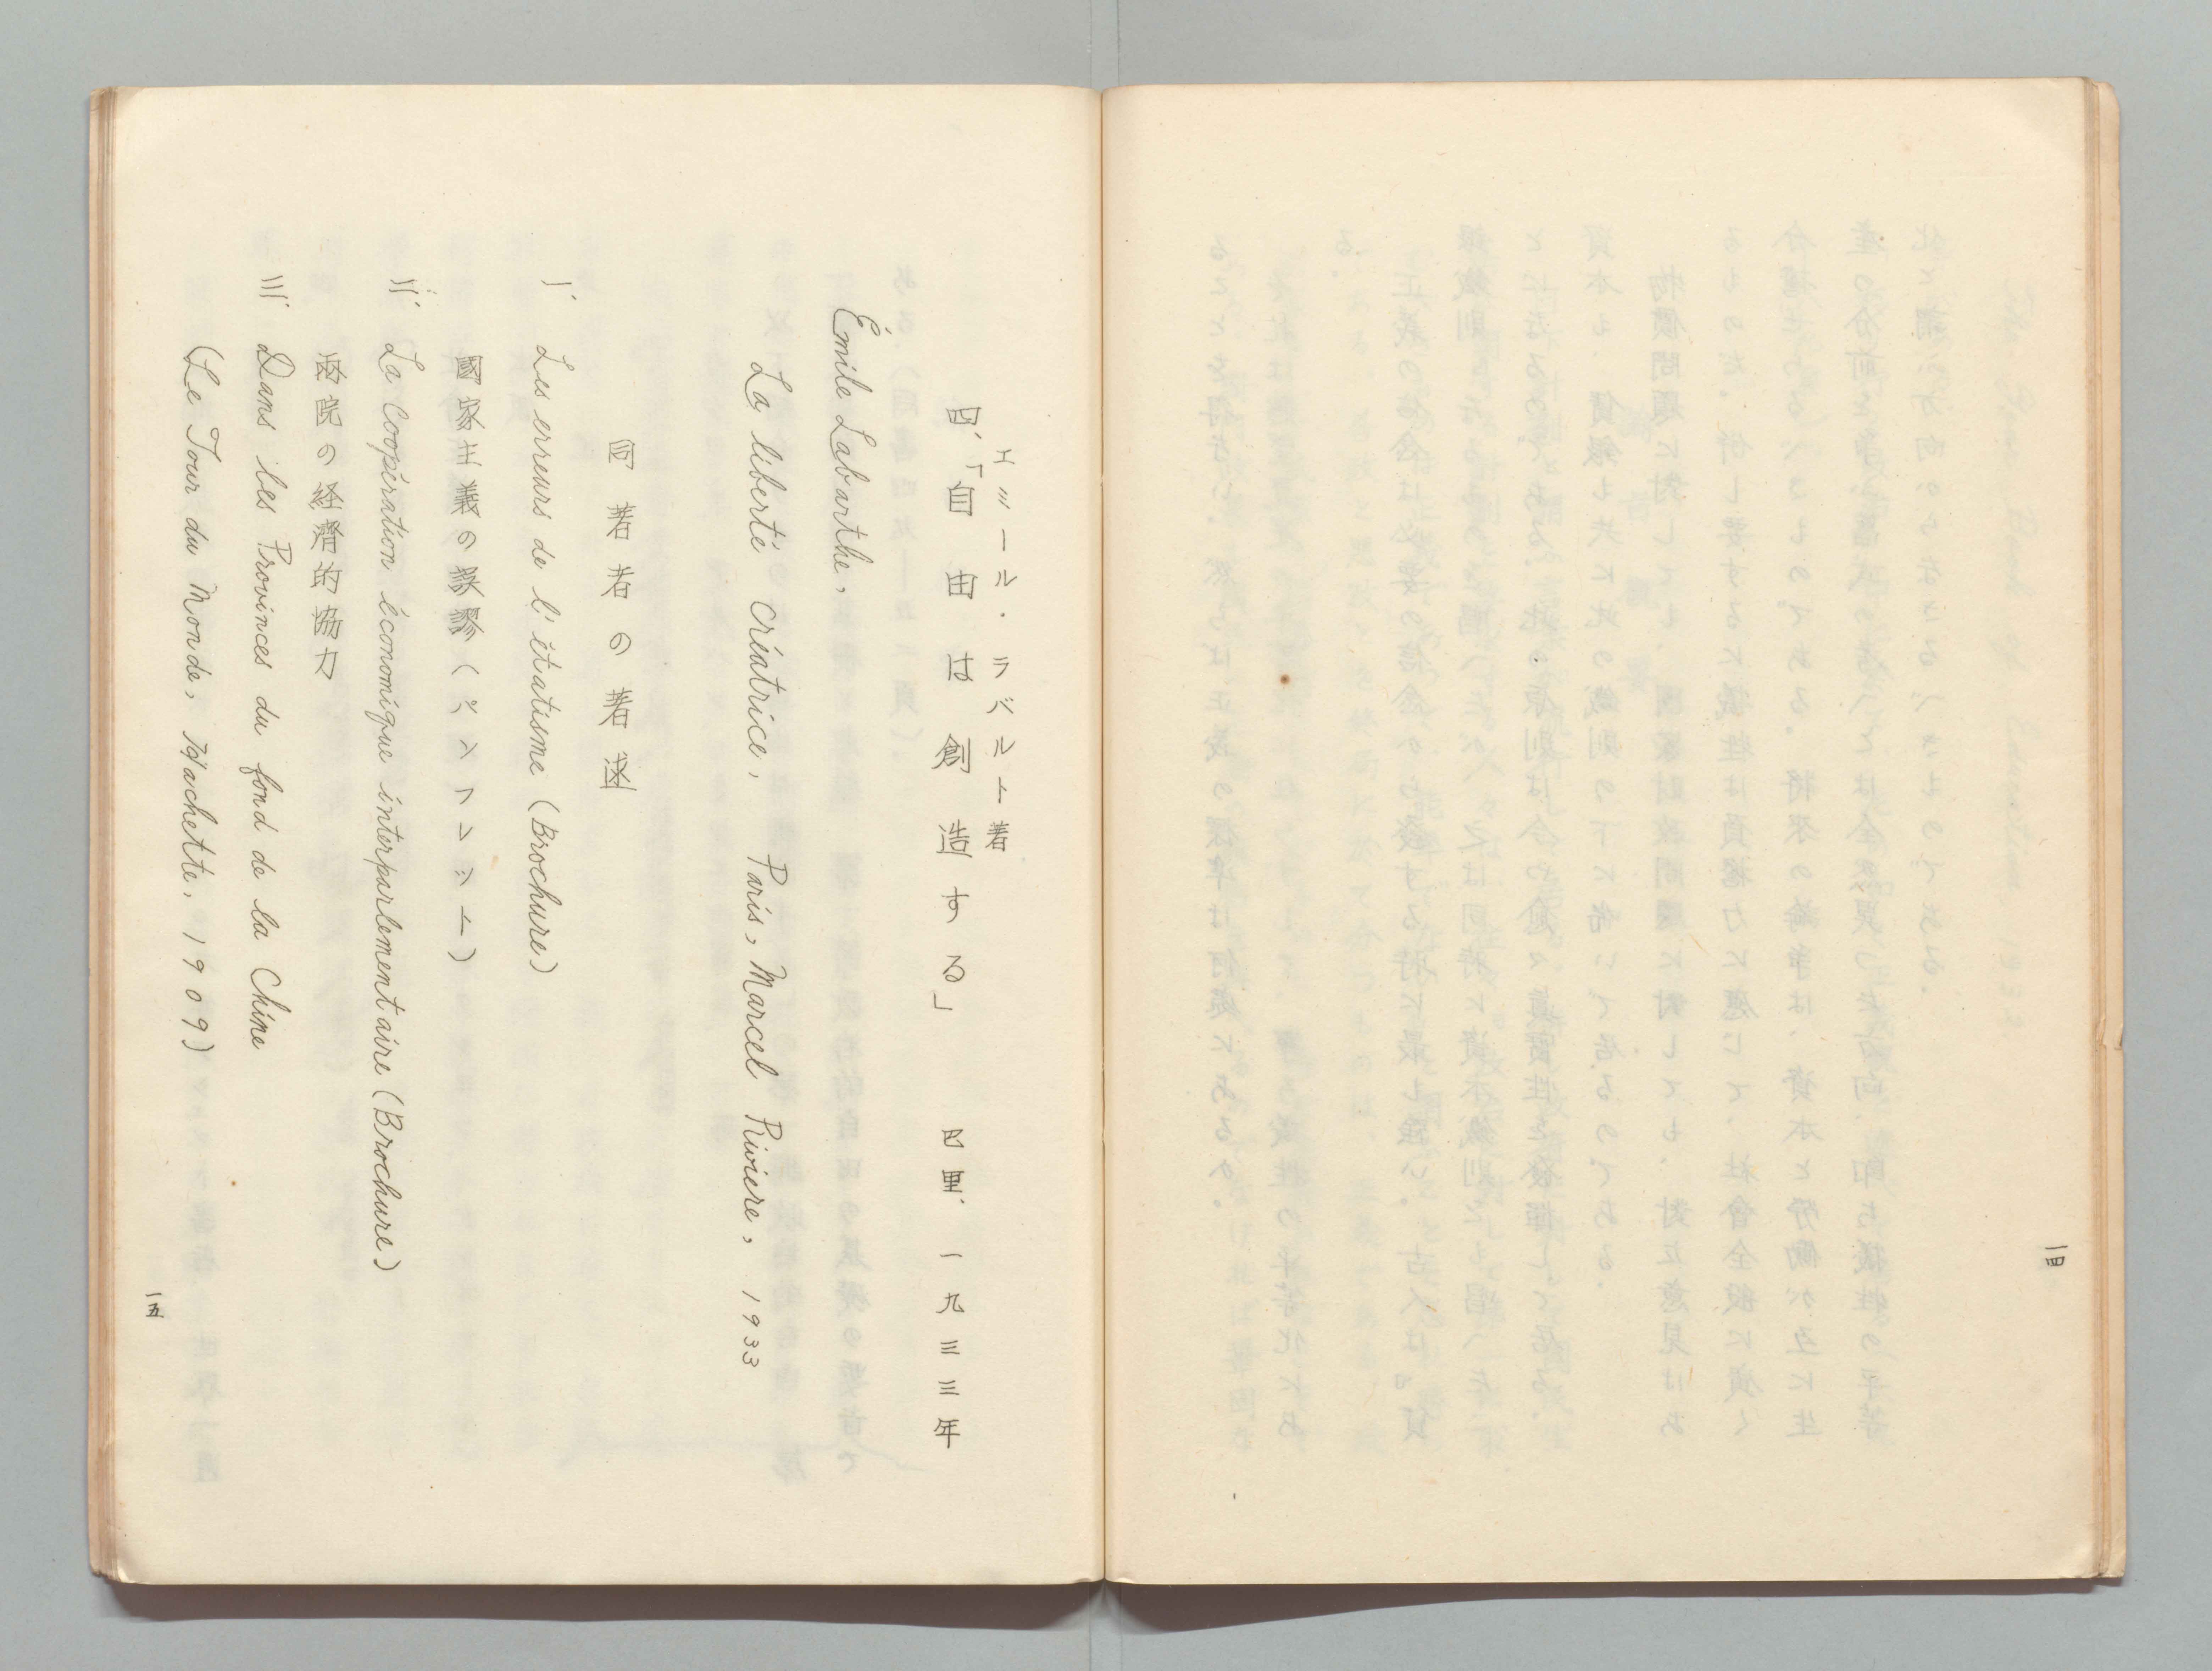 一四
エミール・ラバルト著
四、「自由は創造する」　巴里、一九三三年
Émile Labarthe,
La liberté créatrice, Paris, Marcel Riviere, 1933
同著者の著述
一、Les erreurs de l'étatisme (Brochure)
國家主義の誤謬（パンフレット）
二、La Coopération économique interparlementaire (Brochure)
両院の経濟的協力
三、Dans les Provinces du fond de la Chine
(Le Tour du Monde, Hachette, 1909)
一五